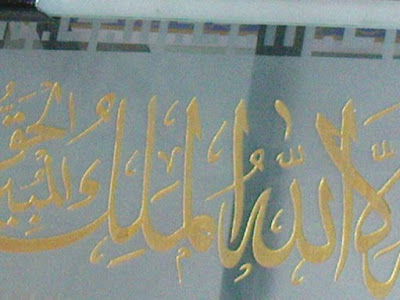 إلا الله الملك الحق المبين